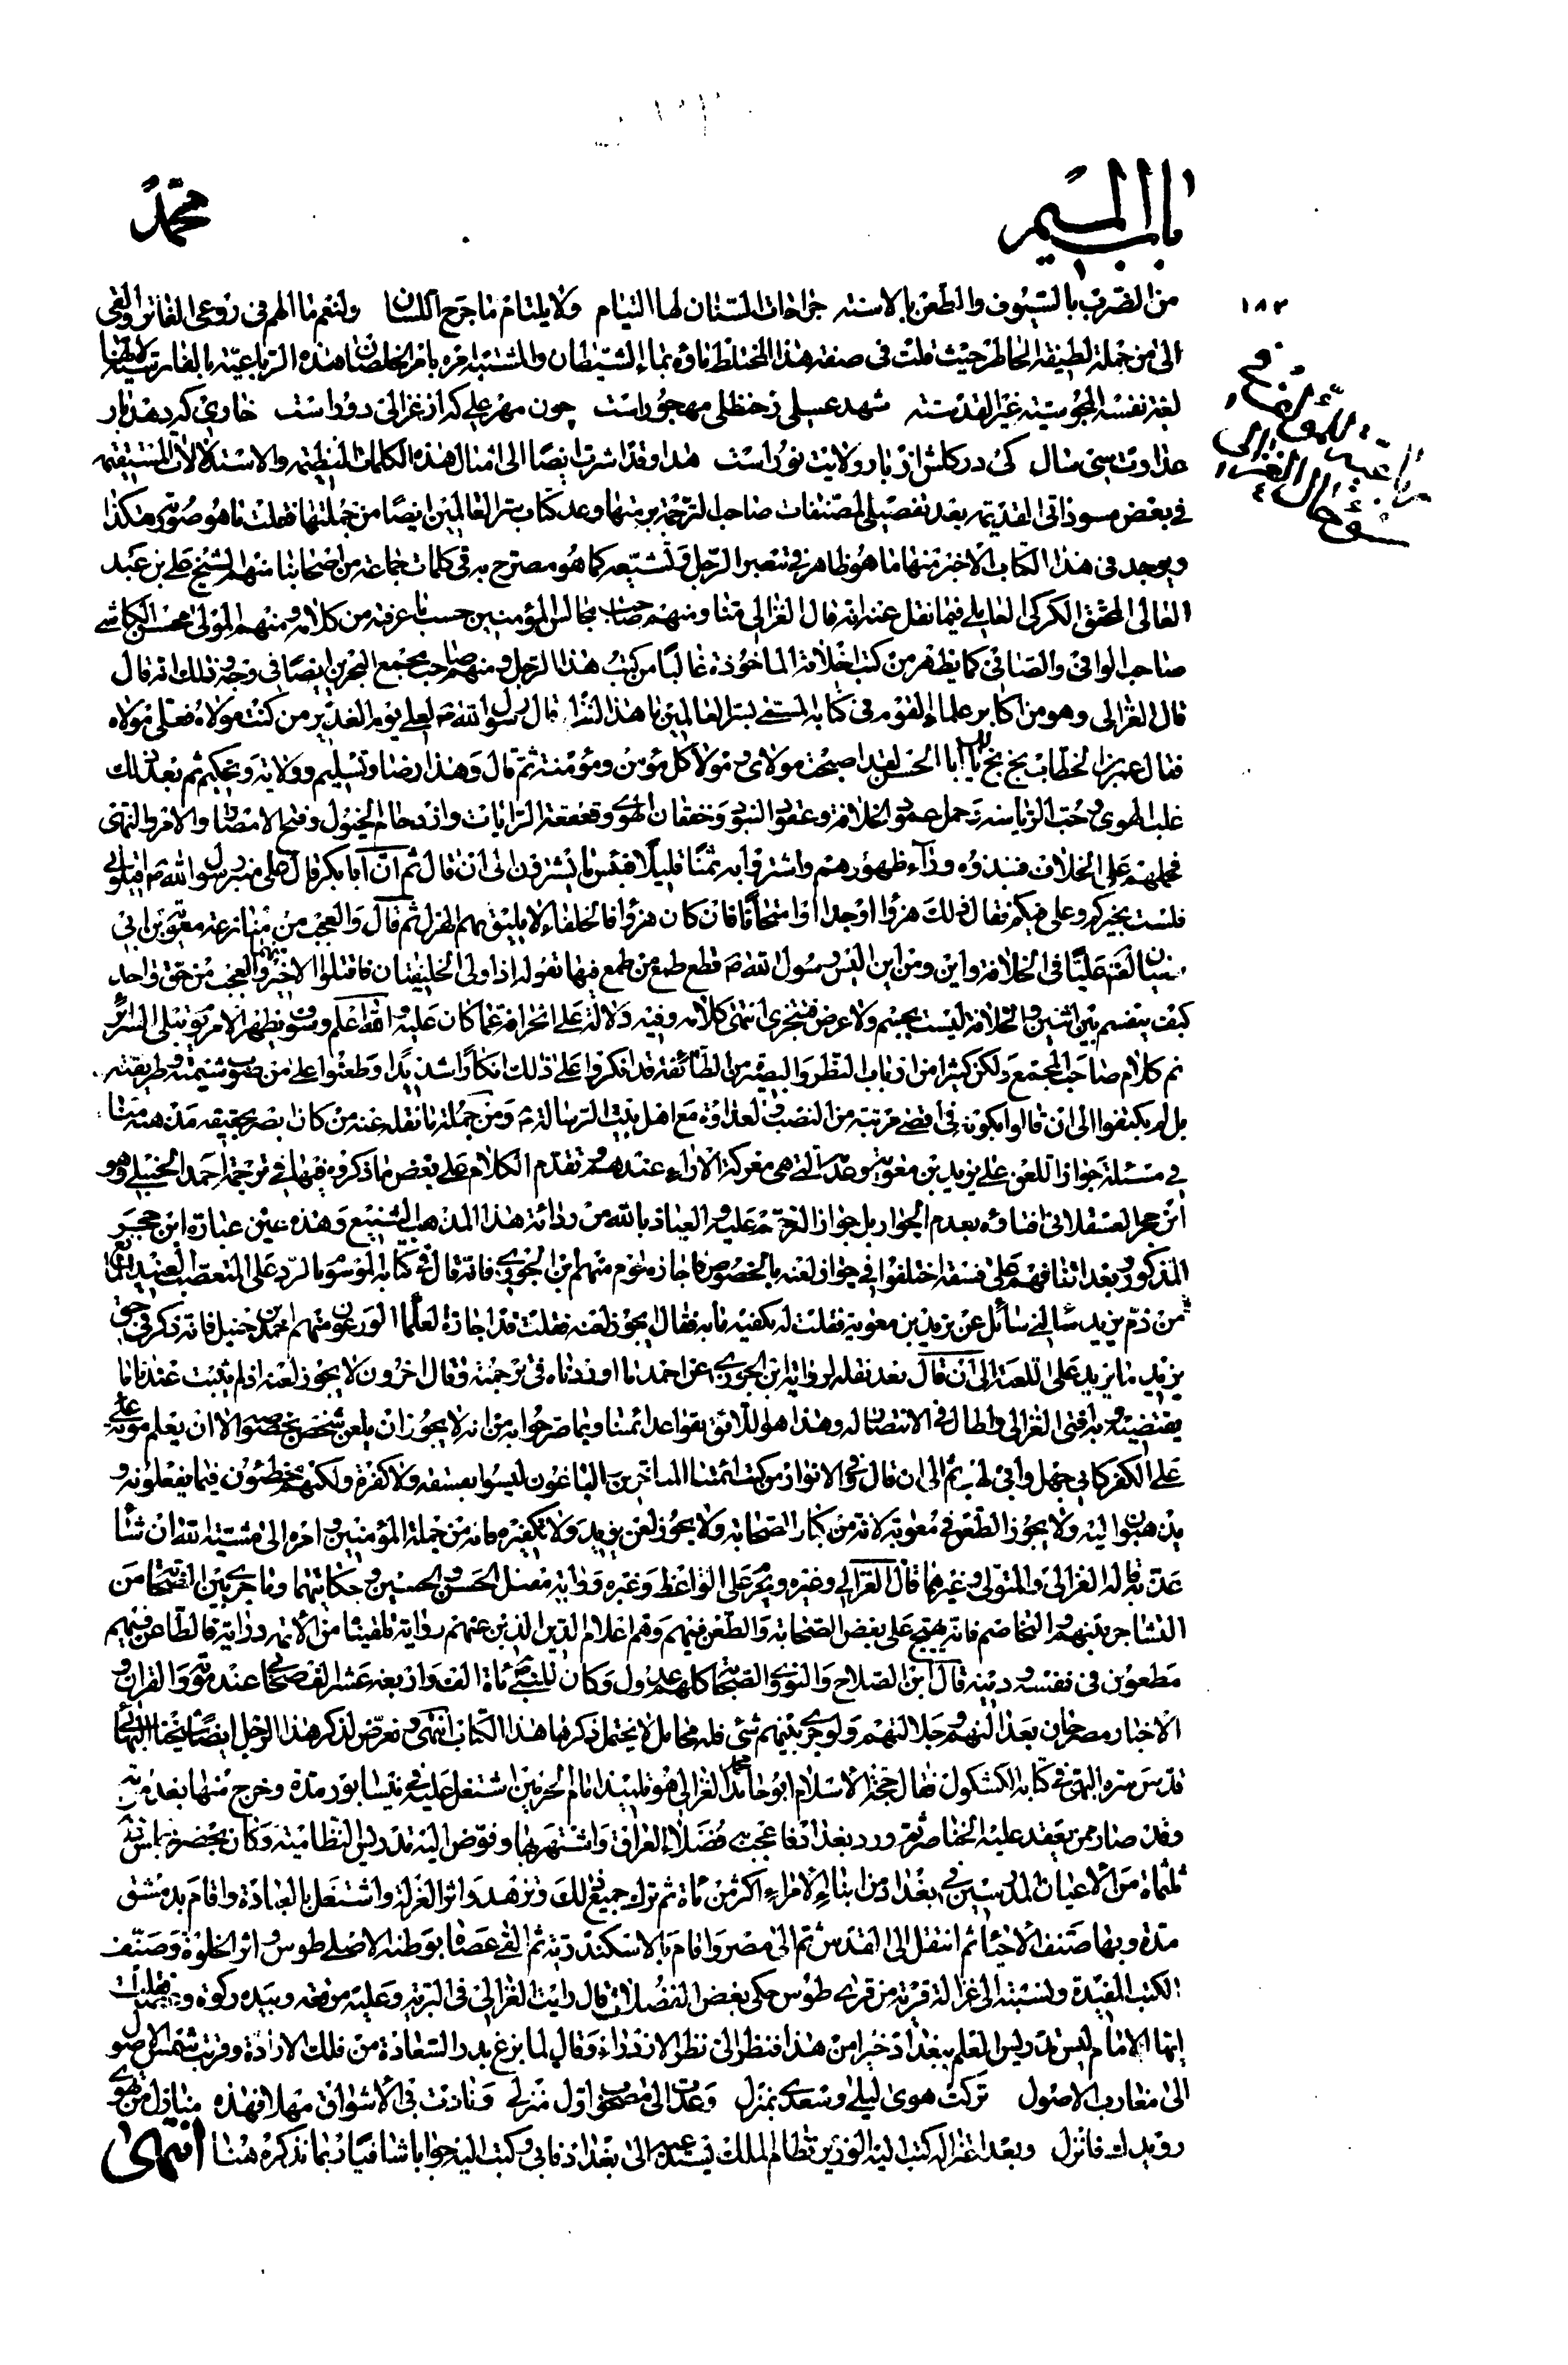 باب الميم
محمد
١٨٣
من الضرب بالسيوف والطعن بالاسنة جراحات السنان لها التيام ولا يلتام ما جرح اللسان ولنعم ما الهم فى روعى الفاتر والقى
الى من جملة لطيفة الخاطر حيث قلت فى صفة هذا المختلط ماؤه بماء الشيطان والمشتبه امره بامر الخلصان هذه الرباعية بالفارسية
لغة نفسه المجوسية غير القدسته شهد عسلى زحنظلى مهجور است چون مهر على كه از غزالى دور است خارى كه دهد بار
عداوت سى سال كى در كلش از بار ولايت نور است هذا وقد اشرت ايضا الى امثال هذه الكلمات والاستدلالات المستقيمه
فى بعض مسوداتى القديمة بعد تفصيلى المصنفات صاحب الترجمة بر متها وعد كتاب سر العالمين ايضا من جملتها فقلت ما هو صورته هكذا
ويوجد فى هذا الكتاب الاخير منها ما هو ظاهر فى تبصر الرجل وتشيعه كما هو مصرح به فى كلمات جماعة من اصحابنا منهم الشيخ على بن عبد
العالى المحقق الكركى العاملى فيما نقل عنه انه قال الغزالى منا ومنهم صاحب مجالس المؤمنين حسب ما عرفته من كلامه ومنهم المولى محسن الكاشى
صاحب الوافى والصافى كما يظهر من كتب اخلاقه الماخوذة غالبا من كتب هذا الرجل ومنهم صاحب مجمع البحرين ايضا فى وجه قلك انه قال
قال الغزالى وهو من اكابر علماء القوم فى كتابه المسمى بسر العالمين ما هذا لفظه قال رسول الله ص لعلى يوم الغدير من كنت مولاه فعلى مولاه
فقال عمر بن الخطاب بخ بخ يا ابا الحسن لقد اصبحت مولاى ومولا كل مؤمن ومؤمنة ثم قال وهذا رضا وتسليم وولاية وتحكيم ثم بعد ذلك
غلب الهوى وحب الرياسة وحمل عمود الخلافة وعقود النبود وخفقان الهوى وقعقعة الرايات وازدحام الخيول وفتح الامصار والامر والنهى
فحملهم على الخلاف فنبذوه وراء ظهورهم واشتروا به ثمنا قليلا فبئس ما يشترون الى ان قال ثم ان ابا بكر قال على منبر رسول الله ص اقيلونى
فلست بخيركم وعلى فيكم فقال ذلك هزؤا او جدا او امتحانا فان كان هزؤا فالخلفاء لا يليق بهم الهزل ثم قال والعجب من منازعة معوية بن ابى
سفيان عليا فى الخلافة واين ومن اين اليس رسول الله ص قطع طمع من طمع فيها بقوله اذا ولى الخليفتان فاقتلوا الاخير منهما والعجب من حق واحد
كيف ينقسم بين اثنين والخلافة ليست بجسم ولا عرض فتتجزى انتهى كلامه وفيه دلالة على انحرافه عما كان عليه والله اعلم وسوف يظهر الامر يوم تبلى السرائر
تم كلام صاحب المجمع ولكن كثيرا من ارباب النظر والبصيرة من الطائفة قد انكروا على ذلك انكارا شديدا وطعنوا على من صوب شيمته وطريقته
بل لم يكتفوا الى ان قالوا بكونه فى اقصى مرتبة من النصب والعداوة مع اهل بيت الرسالة ع ومن جملة ما نقله عنه من كان بصير بحقيقة مذهبه منا
فى مسئلة جواز اللعن على يزيد بن معوية وعدمه التى هى معركة الآراء عندهم وتقدم الكلام على بعض ما ذكروه فيها فى ترجمة احمد الحنبلى وهو
ابن حجر العسقلانى افتاؤه بعدم الجواز بل جواز الترحم عليه والعياذ بالله من رداءة هذا المذهب الشنيع وهذه عين عبارة ابن حجر
المذكور وبعد اتفاقهم على فسقه اختلفوا فى جواز لعنه بالخصوص فاجازه قوم منهم ابن الجوزى فانه قال فى كتابه الموسوم بالرد على المتعصب العنيد المانع
من ذم يزيد سالنى سائل عن يزيد بن معوية فقلت له يكفيه ما به فقال ايجوز لعنه فقلت قد اجازه العلماء الورعون منهم احمد بن حنبل فانه ذكر فى حق
يزيد ما يزيد على اللعنة الى ان قال بعد نقله لرواية ابن الجوزى عن احمد ما اوردناه فى ترجمته وقال اخرون لا يجوز لعنه اذ لم يثبت عندنا ما
يقتضيه وبه افتى الغزالى واطال فى الانتصار له وهذا هو اللائق بقواعد ائمتنا وبما صرحوا به من انه لا يجوز ان يلعن شخص بخصوصه الا ان يعلم موته
على الكفر كابى جهل وابى لهب ثم الى ان قال وفى الانوار من كتب ائمتنا المتاخرين الباغون ليسوا بفسقه ولا كفرة ولكنهم مخطئون فيما يفعلونه و
يذهبون اليه ولا يجوز الطعن فى معوية لانه من كبار الصحابة ولا يجوز لعن يزيد ولا تكفيره فانه من جملة المؤمنين وامره الى مشية الله ان شاء
عذبه قاله الغزالى والمتولى وغيرهما قال الغزالى وغيره ويحرم على الواعظ وغيره رواية مقتل الحسن والحسين وحكايتهما وما جرى بين الصحابة من
التشاجر بينهم والتخاصم فانه يهيج على بغض الصحابة والطعن فيهم وهم اعلام الدين الذين عنهم رواية تلقينا من الائمة دراية فالطاعن فيهم
مطعون فى نفسه ودينه قال ابن الصلاح والنووى الصحابة كلهم عدول وكان للنبى مأة الف واربعة عشر الف صحابى عند موته والقران و
الاخبار مصرحان بعدالتهم وجلالتهم ولو جرى بينهم شئ فله محامل لا يحتمل ذكرها هذا الكتاب انتهى وتعرض لذكر هذا الرجل ايضا شيخنا البهائى
قدس سره البهى فى كتابه الكشكول فقال حجة الاسلام ابو حامد محمد الغزالى هو تلميذ امام الحرمين اشتغل عليه فى نيسابور مدة وخرج منها بعد موته
وقد صار ممن يعقد عليه الخناصر ثم ورد بغداد فاعجب به فضلاء العراق واشتهر بها وفوض اليه تدريس النظامية وكان يحضر مجلس درسه
ثلثمأة من الاعيان المدرسين فى بغداد ومن ابناء الامراء اكثر من مأة ثم ترك جميع ذلك وتزهد واثر العزلة واشتغل بالعبادة واقام بدمشق
مدة وبها صنف الاحياء ثم انتقل الى القدس ثم الى مصر واقام بالاسكندرية ثم القى عصاه بوطنه الاصلى طوس واثر الخلوة وصنف
الكتب المفيدة ونسبته الى غزالة قرية من قرى طوس حكى بعض الفضلاء قال رايت الغزالى فى البرية وعليه مرقعة وبيده ركوة وعصا فقلت
ايها الامام اليس تدريس العلم ببغداد خيرا من هذا فنظر الى نظر الازدراء وقال لما بزغ بدر السعادة من فلك الارادة وقربت شمس الاصول
الى مغارب الاصول تركت هوى ليلى وسعدى بمنزل وعدت الى مصحوب اول منزل ونادت بى الاشواق مهلا فهذه منازل من تهوى
رويدك فانزل وبعد اعتزاله كتب اليه الوزير نظام الملك يستدعيه الى بغداد فابى وكتب اليه جوابا شافيا ربما نذكره هنا انتهى